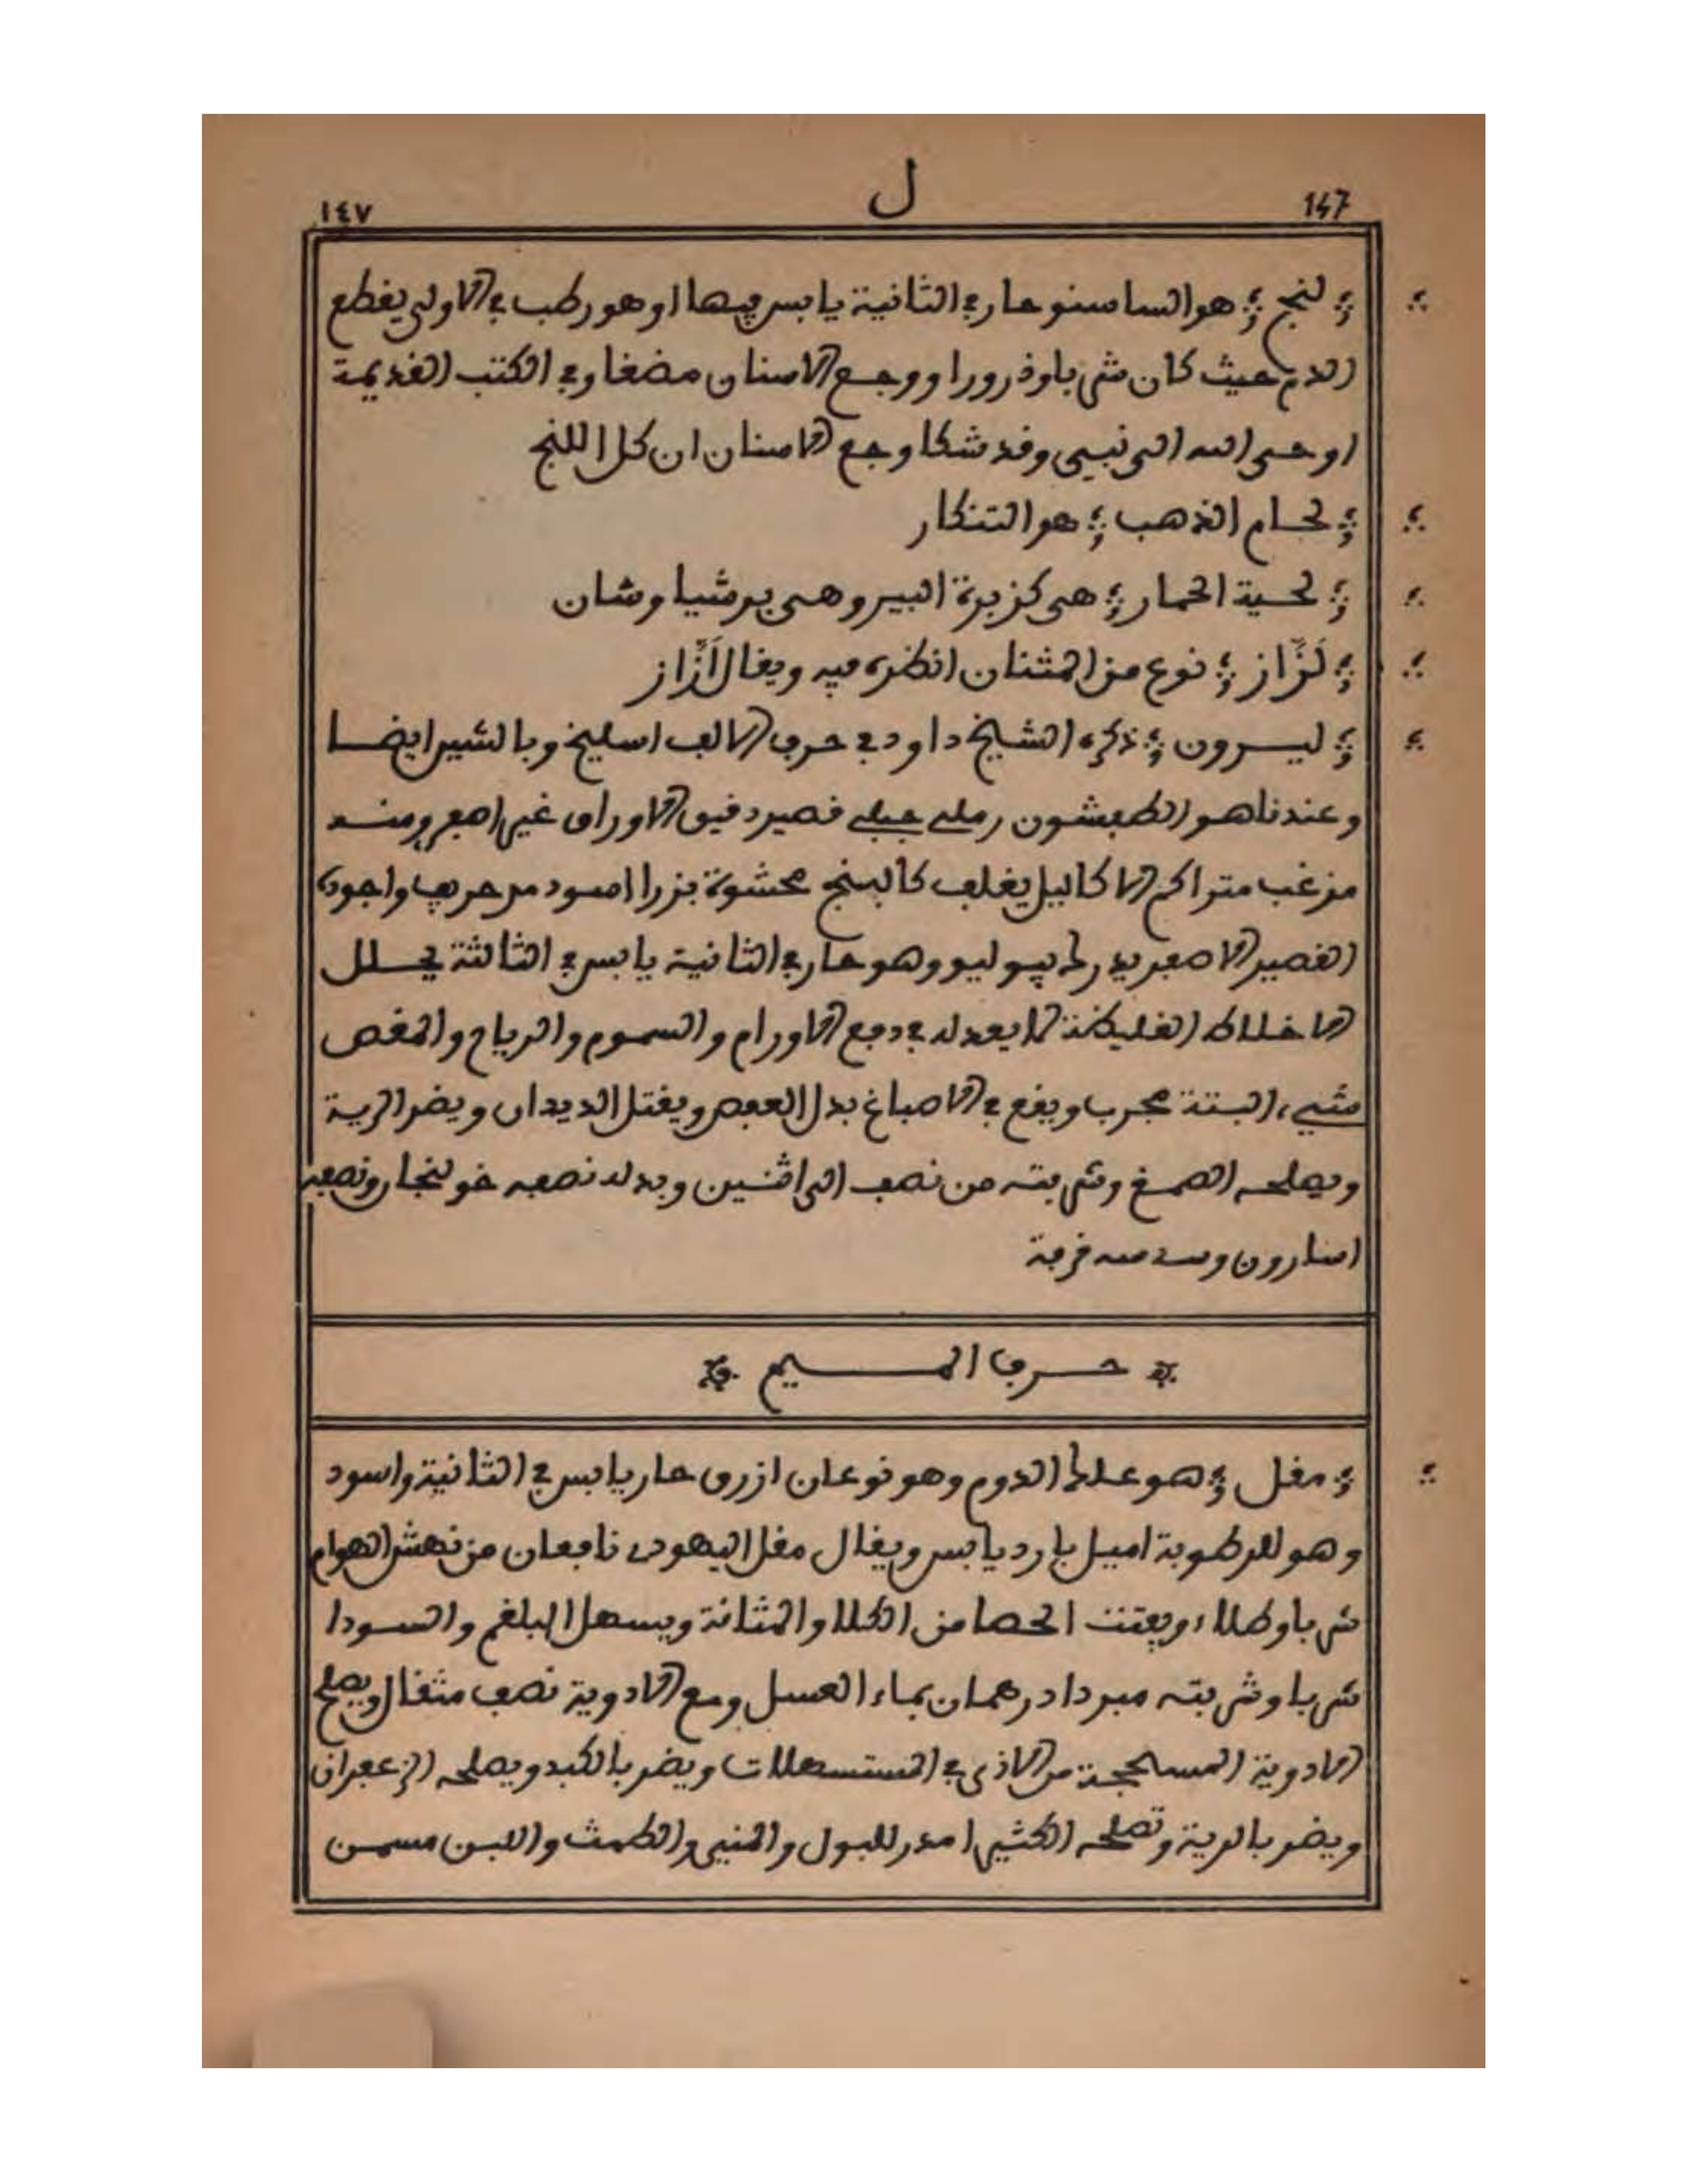 147 ل ١٤٧
؛ لنج ؛ هو الساسنو حار في الثانية يابس فيها او هو رطب في الاولى يقطع
الدم حيث كان شربا وذرورا ووجع الاسنان مضغا وفي الكتب القديمة
اوحى الله الى نبيي وقد شكا وجع الاسنان ان كل اللنج
؛ لحام الذهب ؛ هو التنكار
؛ لحية الحمار ؛ هى كزبرة البير وهى برشياوشان
؛ لَزَّاز ؛ نوع من المثنان انظره فيه ويقال اَزَّاز
؛ ليسرون ؛ ذكره الشيخ داود في حرف الالف اسليخ وبالشين ايضا
وعندنا هو الطفشون رملي جبلي قصير دقيق الاوراق غير اصفر ومنه
مزغب متراكم الاكاليل يغلف كالبنج محشوة بزرا اسود مر حريف واجوده
القصير الاصفر يدرك بيوليو وهو حار في الثانية يابس في الثالثة يحلل
الاخلاط الغليظة لا يعدله في دفع الاورام والسموم والرياح والمغص
شيء البتة مجرب ويقع في الاصباغ بدل العفص ويقتل الديدان ويضر الرية
ويصلحه الصمغ وشربته من نصف الى اثنين وبدله نصفه خولنجان ونصفه
اسارون وسدسه قرفة
حرف الميم
؛ مقل ؛ هو علك الدوم وهو نوعان ازرق حار يابس في الثانية واسود
وهو للرطوبة اميل بارد يابس ويقال مقل اليهود نافعان من نهش الهوام
شربا وطلاء ويفتت الحصا من الكلا والمثانة ويسهل البلغم والسودا
شربا وشربته مبردا درهمان بماء العسل ومع الادوية نصف مثقال ويصلح
الادوية المسحجة من الاذى في المستسهلات ويضر بالكبد ويصلحه الزعفران
ويضر بالرية وتصلحه الكثيرا مدر للبول والمنيى والطمث واللبن مسمن